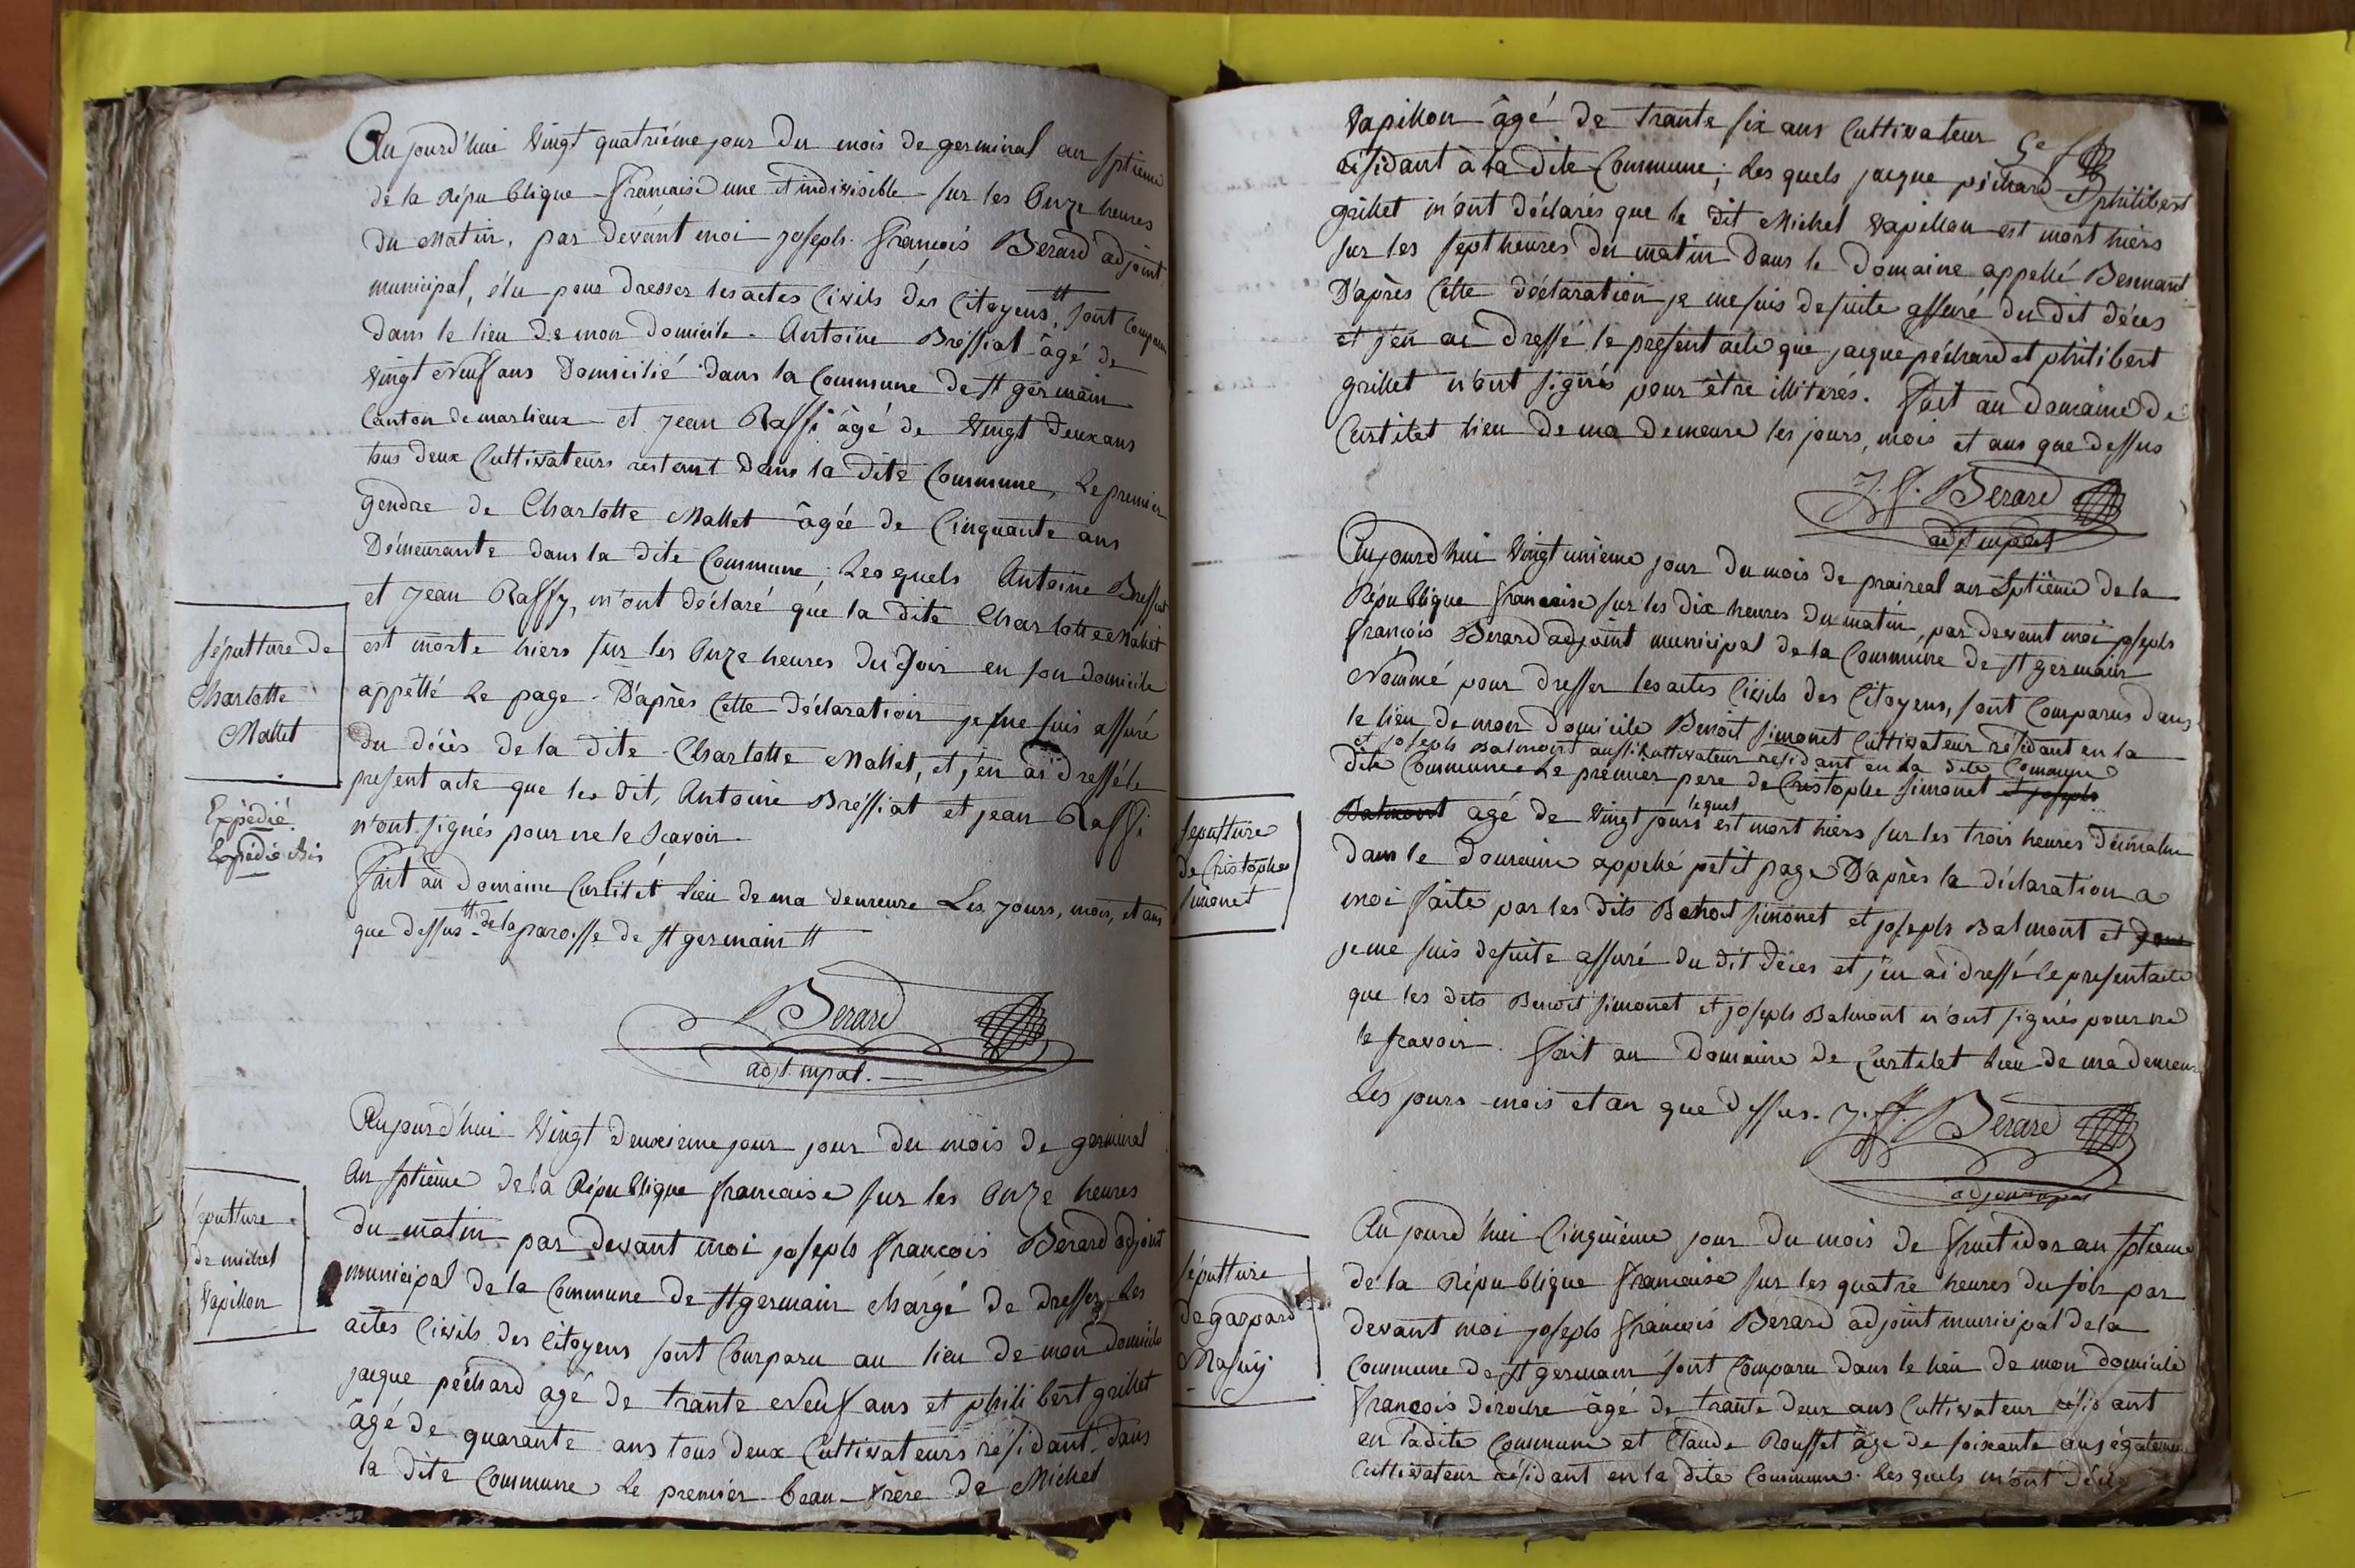 Aujourd'hui Vingt quatriéme jour du mois de germinal an sptieme
de la Répu blique francaise une et indivisible sur les Onze heures
du Matin, par devant moi joseph francois Berard adjoint
municipal, élu pour dresser les actes Civils des Citoyens, sont comparus
dans le lieu de mon domicile. Antoine Bressiat âgé de
Vingt Neuf ans Domicilié dans la Commune de st germain
Canton de marlieux et jean Raffi âgé de Vingt deux ans
tous deux Cultivateurs restant dans la dite Commune, Le premier
gendre de Charlotte Mallet âgée de Cinquante ans
Démeurante dans la dite Commune; Lesquels Antoine Bressiat
et jean Raffy, m'ont déclaré que la dite Charlotte Mallet
est morte hiers sur les Onze heures du soir en son domicile
appellé Le page. D'après Cette déclaration je me suis assuré
du décès de la dite Charlotte Mallet, et j'en ai dressé le
present acte que les dit, Antoine Bressiat et jean Raffi
n'ont signés pour ne le Scavoir.
fait au Domaine Castitet lieu de ma demeure Les jours, mois, et an
que dessus tt de la paroisse de st germain tt
Berard
adjt mpal.
sépulture de
Charlotte
Mallet
Expédié
Expédié bis
Aujourd'hui Vingt deuxieme jour jour du mois de germinal
An sptième de la Répu blique francaise sur les Onze heures
du matin par devant moi joseph francois Berard adjoint
municipal de la Commune de st germain chargé de dresser Les
actes Civils des Citoyens sont Comparu au lieu de mon domicile
jacque péchard agé de trante Neuf ans et phili bert grillet
âgé de quarante ans tous deux Cultivateurs résidant dans
la dite Commune Le premier beau frère de Michel
sépulture
de michel
Vapillon
Vapillon âgé de trante six ans Cultivateur
résidant à la dite Commune; Les quels jacque péchard et philibert
grillet m'ont déclarés que le dit Michel Vapillon est mort hiers
sur les sept heures du matin dans le domaine appellé Besmant
D'après Cette déclaration je me suis desuite assuré du dit décès
et j'en ai dressé le present acte que jacque péchard et philibert
grillet n'ont signés pour être illitérés. fait au domaine de
Castitet lieu de ma demeure les jours, mois et ans que dessus
J. f. Berard
adjt mpal
Aujourd hui Vingt unieme jour du mois de praireal an Sptième de la
République francaise sur les dix heures du matin, par devant moi joseph
francois Berard adjoint municipal de la Commune de st germain
Nommé pour dresser les actes Civils des Citoyens, sont Comparus dans
le lieu de mon domicile Benoit simonet Cultivateur résidant en la
et joseph Balmont aussi Cultivateur residant en la dite Commune
dite Commune Le premier pere de Christophe simonet et joseph
Balmont agé de Vingt jours lequel est mort hiers sur les trois heures du matin
dans le domaine appellé petit page D'après la déclaration a
moi faite par les dits Benoit simonet et joseph Balmont et
je me suis desuite assuré du dit décès et j'en ai dressé le present acte
que les dits Benoit simonet et joseph Balmont n'ont signés pour ne
le scavoir. fait au Domaine de Castelet lieu de ma demeure
Les jours mois et an que dessus. J. f. Berard
sépulture
de Christophe
simonet
Aujourd'hui Cinquième jour du mois de fructidor an sptieme
de la République francaise sur les quatre heures du soir par
devant moi joseph francois Berard adjoint municipal de la
Commune de st germain sont Comparu dans le lieu de mon domicile
francois déroche âgé de trante deux ans Cultivateur résidant
en ladite Commune et Claude Rousset âge de soixante ans également
Cultivateur résidant en la dite Commune. Les quels m'ont
sépulture
de gaspard
Masuy